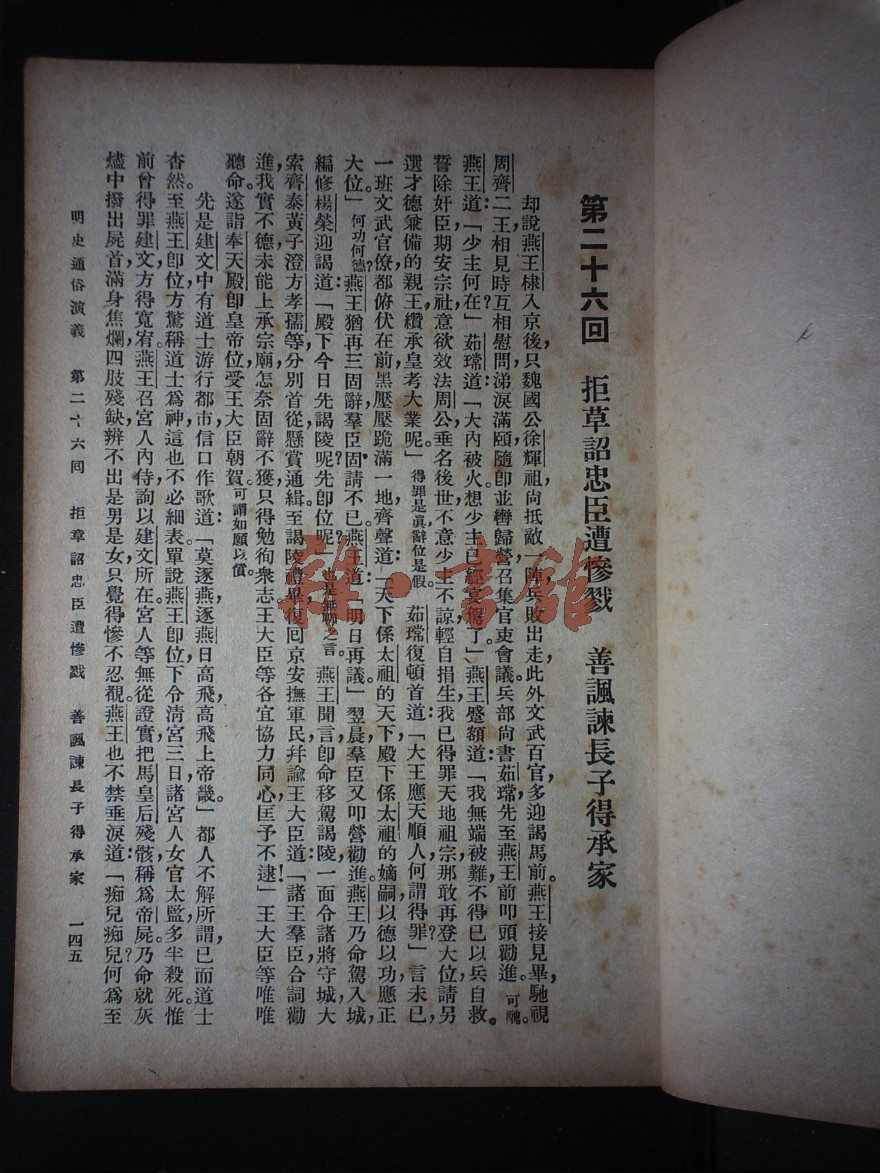 第二十六回　拒草詔忠臣遭慘戮　善諷諫長子得承家
却說燕王棣入京後，只魏國公徐輝祖尙抵敵一陣，兵敗出走，此外文武百官，多迎謁馬前。燕王接見畢，馳視
周齊二王，相見時互相慰問，涕淚滿頤，隨卽並轡歸營，召集官吏會議。兵部尙書茹瑺，先至燕王前叩頭勸進。可醜。
燕王道：「少主何在？」茹瑺道：「大內被火，想少主已經宴駕了。」燕王蹙額道：「我無端被難，不得已以兵自救。
誓除奸臣，期安宗社，意欲效法周公，垂名後世，不意少主不諒，輕自捐生，我已得罪天地祖宗，那敢再登大位，請另
選才德兼備的親王，纘承皇考大業呢。」得罪是眞，辭位是假。茹瑺復頓首道：「大王應天順人，何謂得罪？」言未已，
一班文武官僚，都俯伏在前，黑壓壓跪滿一地，齊聲道：「天下係太祖的天下，殿下係太祖的嫡嗣，以德以功，應正
大位。」何功何德？燕王猶再三固辭，羣臣固請不已。燕王道：「明日再議。」翌晨，羣臣又叩營勸進。燕王乃命駕入城，
編修楊榮迎謁道：「殿下今日先謁陵呢？先卽位呢？」也是無聊之言。燕王聞言，卽命移駕謁陵，一面令諸將守城，大
索齊泰黃子澄方孝孺等，分別首從，懸賞通緝。至謁陵禮畢，復回京安撫軍民，幷諭王大臣道：「諸王羣臣，合詞勸
進，我實不德，未能上承宗廟，怎奈固辭不獲，只得勉徇衆志，王大臣等各宜協力同心，匡予不逮！」王大臣等唯唯
聽命。遂詣奉天殿卽皇帝位，受王大臣朝賀。可謂如願以償。
先是建文中有道士游行都市，信口作歌道：「莫逐燕，逐燕日高飛，高飛上帝畿。」都人不解所謂，已而道士
杳然。至燕王卽位，方驚稱道士爲神，這也不必細表。單說燕王卽位，下令淸宮三日，諸宮人女官太監，多半殺死。惟
前曾得罪建文，方得寬宥。燕王召宮人內侍，詢以建文所在，宮人等無從證實，把馬皇后殘骸，稱爲帝屍。乃命就灰
燼中撥出屍首，滿身焦爛，四肢殘缺，辨不出是男是女，只覺得慘不忍覩。燕王也不禁垂淚道：「痴兒痴兒！何爲至
明史通俗演義　第二十六回　拒草詔忠臣遭慘戮　善諷諫長子得承家　一四五
雜·書館